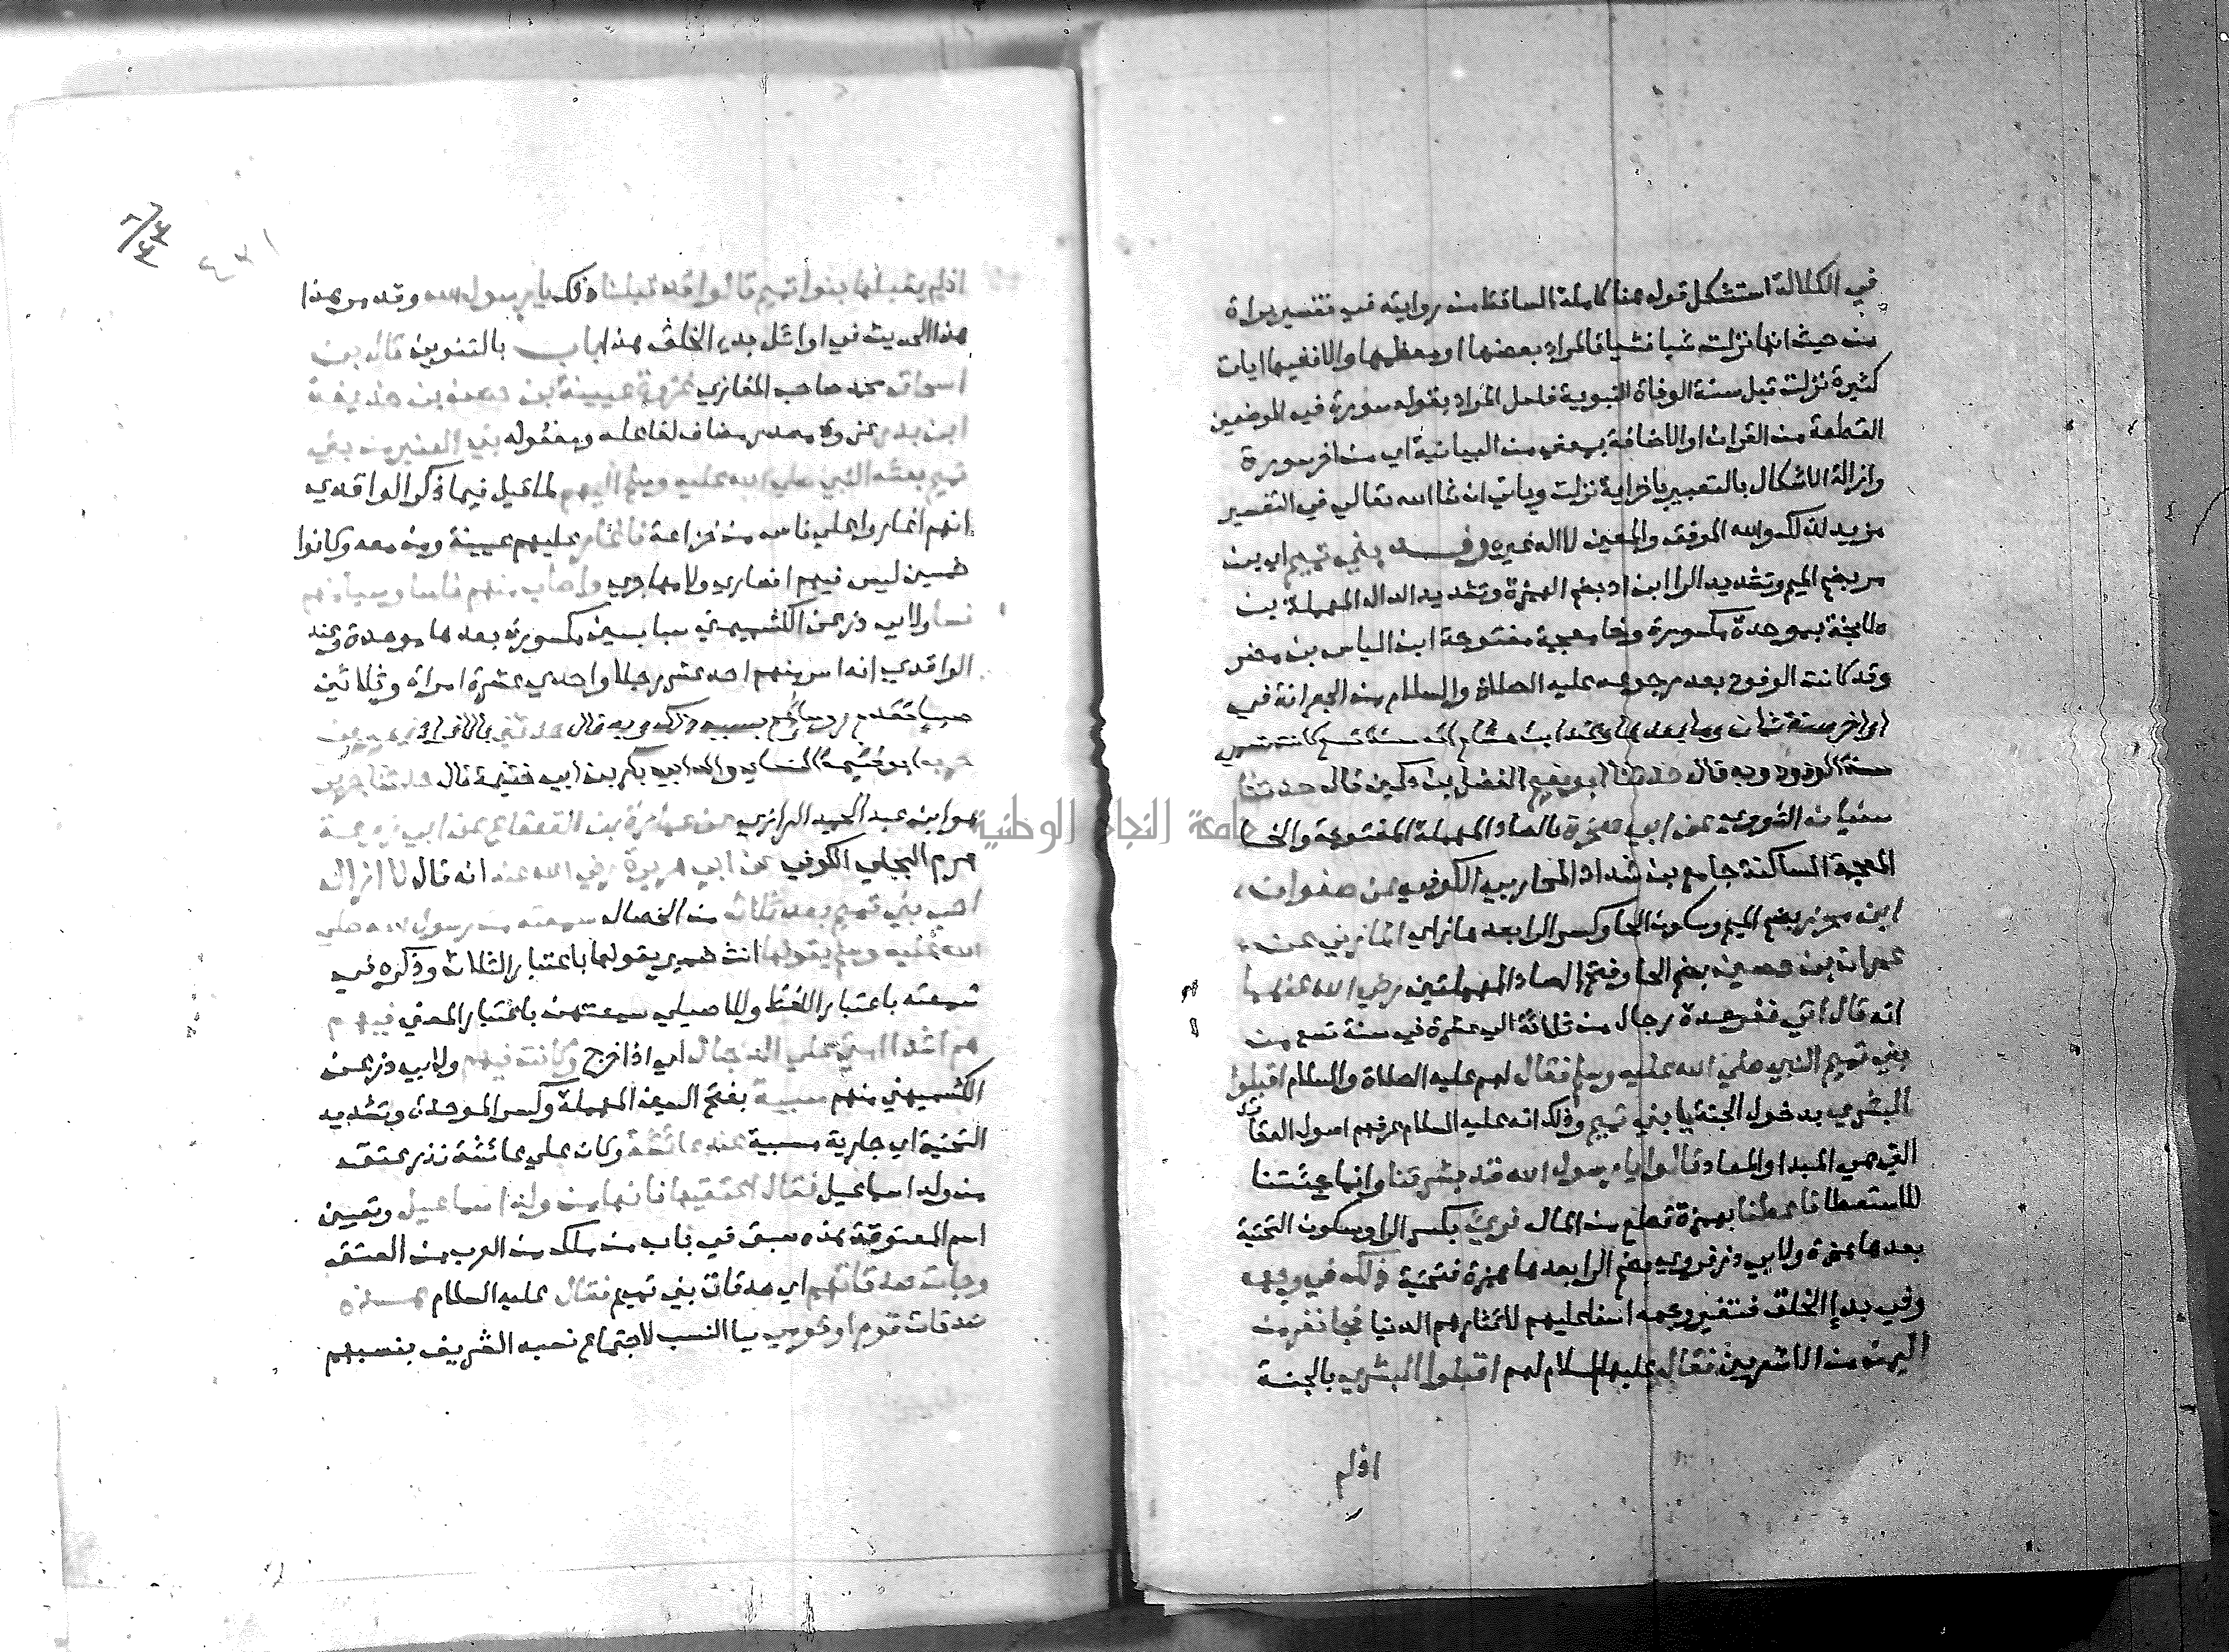 في الكلالة استشكل قوله هنا كاملة الساقط من روايته في تفسير براة
من حيث انها نزلت شيا فشيا فالمراد بعضها او معظمها والا ففيها ايات
كثيرة نزلت قبل سنة الوفاة النبوية فلعل المراد بقوله سورة في الموضعين
القطعة من القران او الاضافة بمعنى من البيانية اي من اخر سورة
وازالة الاشكال بالتعبير باخر اية نزلت وياتي ان شا الله تعالي في التفسير
مزيد لذلك والله الموفق والمعين لا اله غيره وفد بني تميم اي بن
مر بضم الميم وتشديد الرا ابن اد بضم الهمزة وتشديد الدال المهملة بن
طابخة بموحدة مكسورة وخا معجمة مفتوحة ابن الياس بن مضر
وقد كانت الوفود بعد مرجوعه عليه الصلاة والسلام من الجعرانة في
اواخر سنة ثمان وما بعدها وعند ابن هشام انه سنة تسع كانت تسمي
سنة الوفود وبه قال حدثنا ابو نعيم الفضل بن دكين قال حدثنا
سفيان الثوري عن ابي صخرة بالصاد المهملة المفتوحة والخا
المعجمة الساكنة جامع بن شداد المحاربي الكوفي عن صفوان
ابن محرز بضم الميم وسكون الحا وكسر الرا بعدها زاي المازني عن
عمران بن حصين بضم الحا وفتح الصاد المهملتين رضي الله عنهما
انه قال اتي نفر عدة رجال من ثلاثة الي عشرة في سنة تسع من
بني تميم النبي صلي الله عليه وسلم فقال لهم عليه الصلاة والسلام اقبلوا
البشري بدخول الجنة يا بني تميم وذلك انه عليه السلام عرفهم اصول العقائد
التي هي المبدا والمعاد قالوا يا رسول الله قد بشرتنا وانما جئتنا
للاستعطا فاعطنا بهمزة قطع من المال فريئ بكسر الرا وسكون التحتية
بعدها همزة ولابي ذر فروي بضم الرا بعدها همزة فتحتية ذلك في وجهه
وفي بدإ الخلق فتغير وجهه اسفا عليهم لايثارهم الدنيا فجا نفر من
اليمن من الاشعريين فقال عليه السلام لهم اقبلوا البشري بالجنة
اذ لم
اذ لم يقبلها بنوا تميم قالوا قد قبلنا ذلك يا رسول الله وقد مر هذا
هذا الحديث في اوائل بدء الخلق هذا باب بالتنوين قال بن
اسحاق محمد صاحب المغازي غزوة عيينة بن حصن بن حذيفة
ابن بدر غزوة مصدر مضاف لفاعله ومفعوله بني العنبر من بني
تميم بعثه النبي صلي الله عليه وسلم اليهم لما قيل فيما ذكر الواقدي
انهم اغاروا علي ناس من خزاعة فاغار عليهم عيينة ومن معه وكانوا
خمسين ليس فيهم انصاري ولا مهاجري واصاب منهم ناسا وسبا منهم
نسا ولابي ذر عن الكشميهني سبا بسين مكسورة بعدها موحدة وعند
الواقدي انه اسر منهم احد عشر رجلا واحدي عشرة امراة وثلاثين
صبيا فقدم روساؤهم بسبب ذلك وبه قال حدثني بالافراد زهير بن
حرب ابو خيثمة النساي والد ابي بكر بن ابي خيثمة قال حدثنا جرير
هو ابن عبد الحميد الرازي عن عمارة بن القعقاع عن ابي زرعة
هرم البجلي الكوفي عن ابي هريرة رضي الله عنه انه قال لا ازال
احب بني تميم بعد ثلاث من الخصال سمعته من رسول الله صلي
الله عليه وسلم يقولها انث ضمير يقولها باعتبار الثلاث وذكره في
سمعته باعتبار اللفظ وللاصيلي سمعتهن باعتبار المعني فيهم
هم اشد امتي علي الدجال اي اذا خرج وكانت فيهم ولابي ذر عن
الكشميهني منهم سبية بفتح السين المهملة وكسر الموحدة وتشديد
التحتية اي جارية مسبية عند عائشة وكان علي عائشة نذر عتق
من ولد اسماعيل فقال اعتقيها فانها من ولد اسماعيل وتعيين
اسم المعتوقة هذه سبق في باب من ملك من العرب من العتق
وجات صدقاتهم اي صدقات بني تميم فقال عليه السلام هذه
صدقات قوم او قومي بيا النسب لاجتماع نسبه الشريف بنسبهم
جامعة النجاح الوطنية